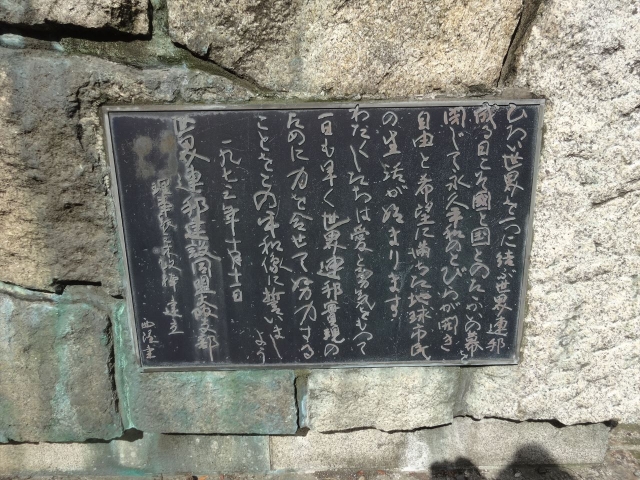 ひろい世界を一つに結ぶ世界連邦
成る日こそ國と国とのたたかいの幕を
閉じて永久平和のとびらが開き
自由と希望に満ちた地球市民
の生活が始まります
わたくしたちは愛と勇気をもって
一日も早く世界連邦実現の
ために力を合せて努力する
ことをこの平和像に誓いましょう
一九七三年十月十一日
世界連邦建設同盟大阪支部
建立
書